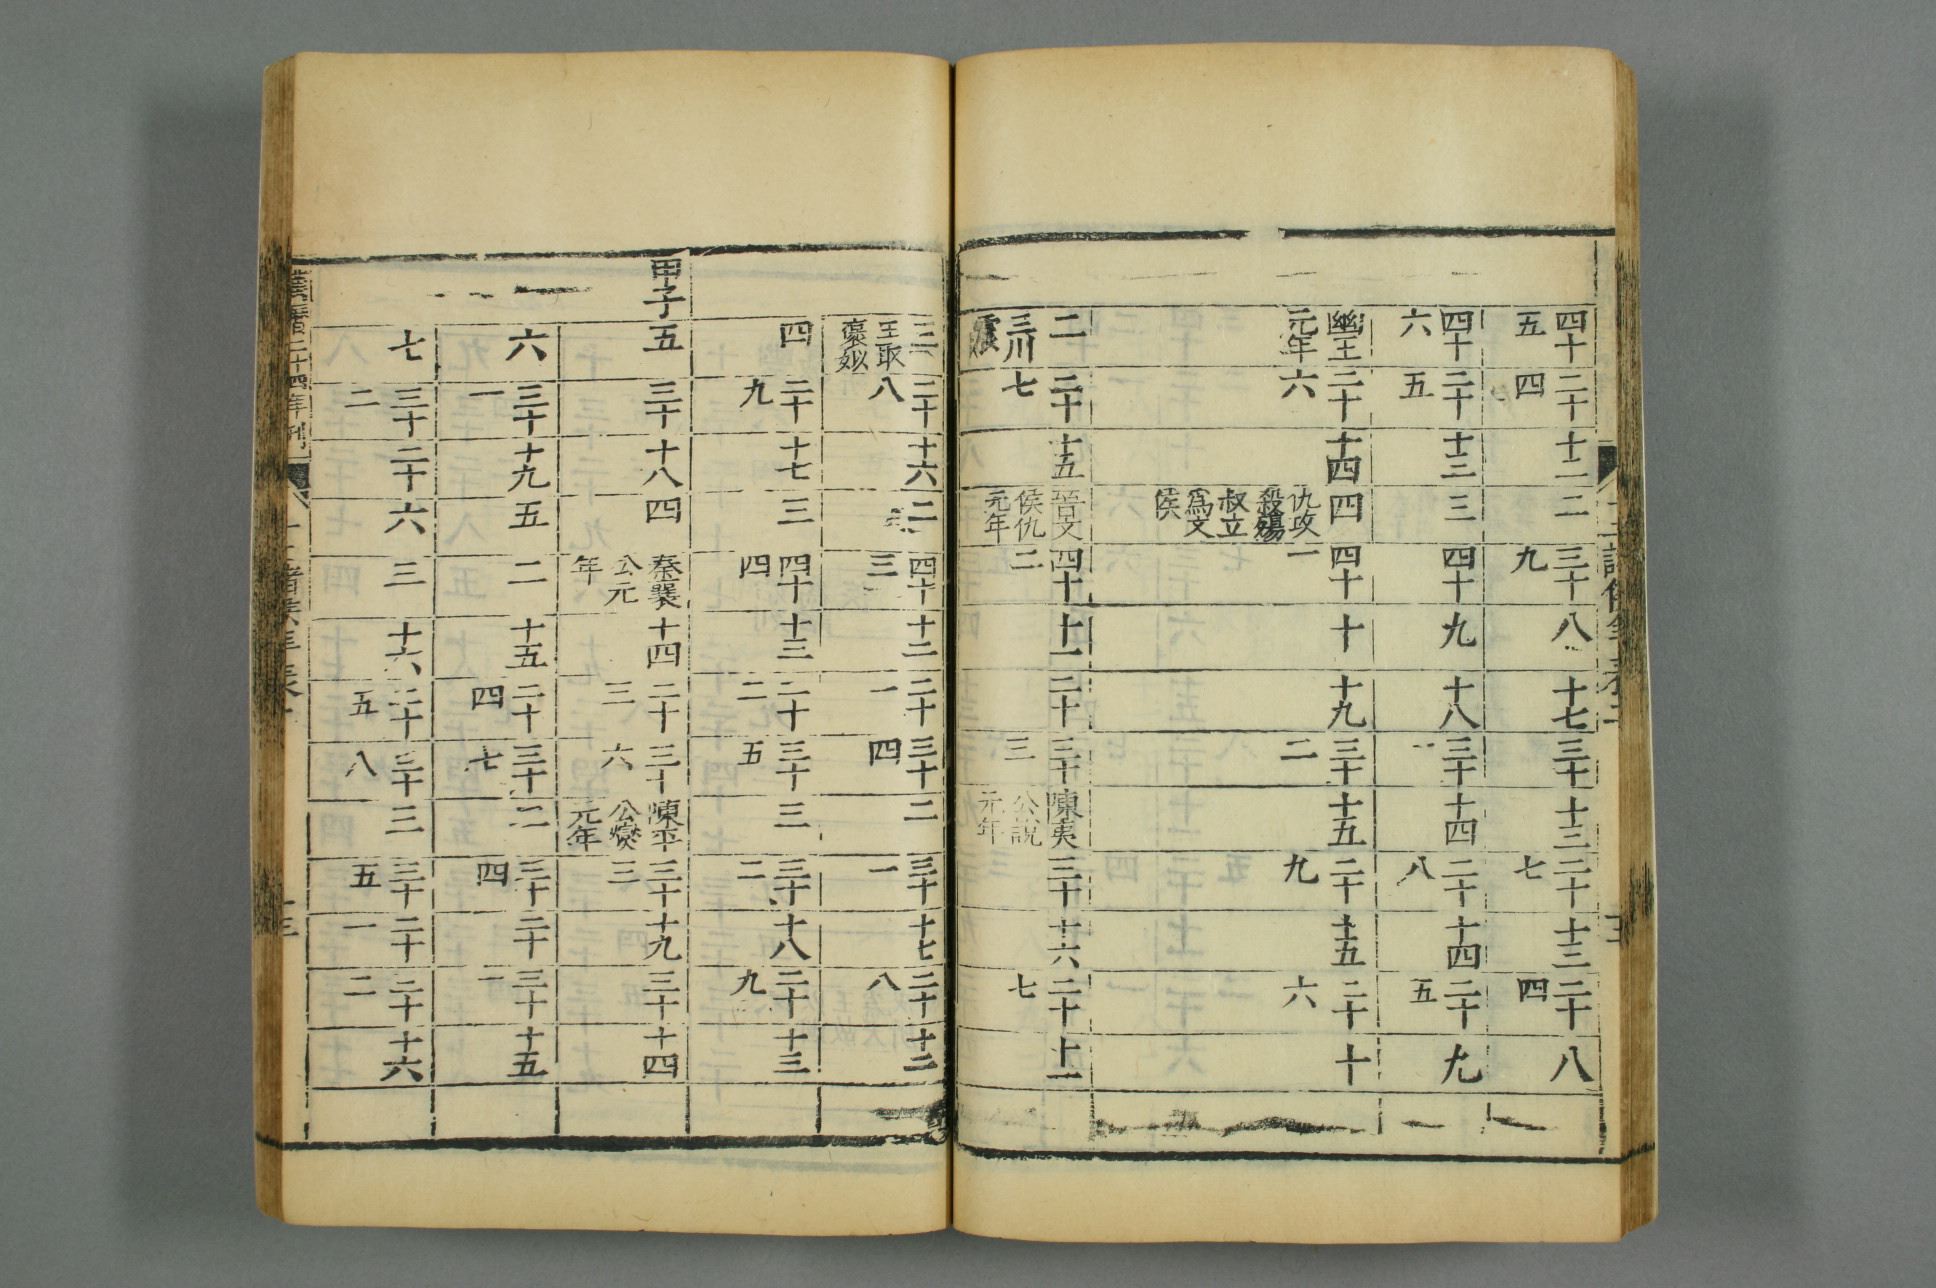 四十五 二十四 十二 二 三十九 八 十七 三十 十三 二十七 十三 二十四 八
四十六 二十五 十三 三 四十 九 十八 三十一 十四 二十八 十四 二十五 九
幽王元年 二十六 十四 四仇攻殺殤叔立爲文侯 四十一 十 十九 三十二 十五 二十九 十五 二十六 十
二三川震 二十七 十五 晉文侯仇元年 四十二 十一 二十 三十三 陳夷公說元年 三十 十六 二十七 十一
三王取褒姒 二十八 十六 二 四十三 十二 二十一 三十四 二 三十一 十七 二十八 十二
四 二十九 十七 三 四十四 十三 二十二 三十五 三 三十二 十八 二十九 十三
甲子 五 三十 十八 四 秦襄公元年 十四 二十三 三十六 陳平公燮元年 三十三 十九 三十 十四
六 三十一 十九 五 二 十五 二十四 三十七 二 三十四 二十 三十一 十五
七 三十二 二十 六 三 十六 二十五 三十八 三 三十五 二十一 三十二 十六
萬曆二十四年刊 十二諸侯年表